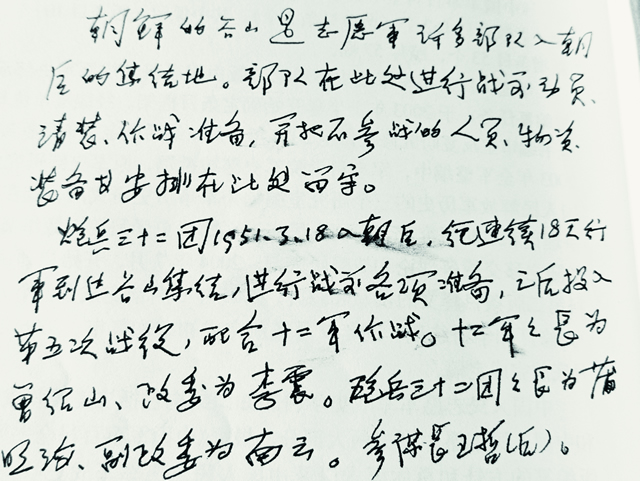 朝鲜的谷山是志愿军许多部队入朝
后的集结地。部队在此处进行战前动员、
清装、作战准备,并把不参战的人员、物资
装备等安排在此处留守。
炮兵三十二团1951.3.18入朝后,经连续18天行
军到达谷山集结,进行战前各项准备,之后投入
第五次战役,配合十二军作战。十二军军长为
曾绍山、政委为李震。炮兵三十二团团长为蒲
、副政委为南云。参谋长王哲(后)。